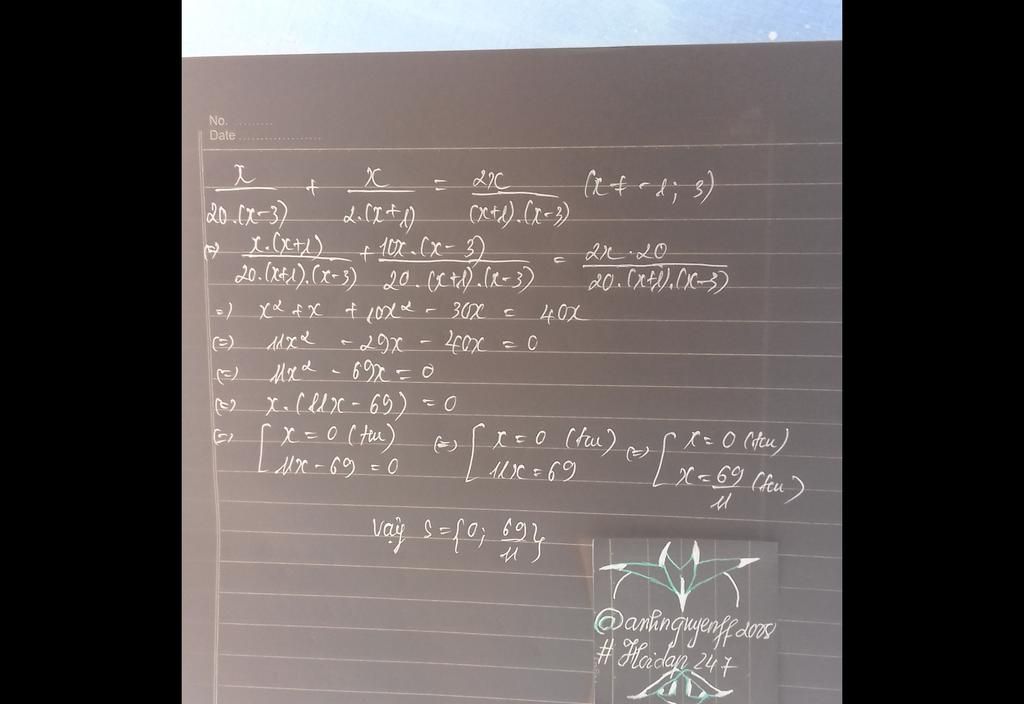 No. .........
Date ...................
x/20.(x-3) + x/2.(x+1) = 2x/(x+1).(x-3) (x ≠ -1; 3)
(=) x.(x+1)/20.(x+1).(x-3) + 10x.(x-3)/20.(x+1).(x-3) = 2x.20/20.(x+1).(x-3)
=) x² + x + 10x² - 30x = 40x
(=) 11x² - 29x - 40x = 0
(=) 11x² - 69x = 0
(=) x.(11x - 69) = 0
(=) [ x = 0 (tm) (=) [ x = 0 (tm) (=) [ x = 0 (tm)
11x - 69 = 0 11x = 69 x = 69/11 (tm)
Vậy S = {0; 69/11}
@anhnguyenff2008
# Hoidap 247